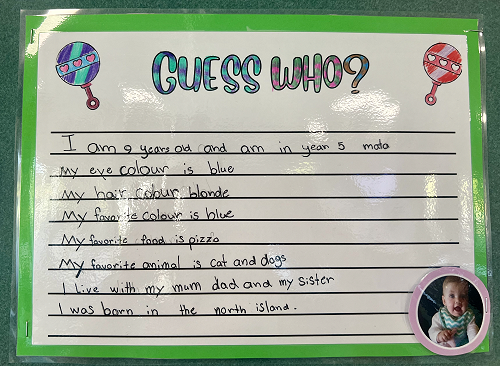 GUESS WHO?
I am 9 years old and am in year 5
My eye colour is blue
My hair colour blonde
My favorite colour is blue
My favorite food is pizza
My favorite animal is cat and dogs
I Live with my mum dad and my sister
I was born in the north island.